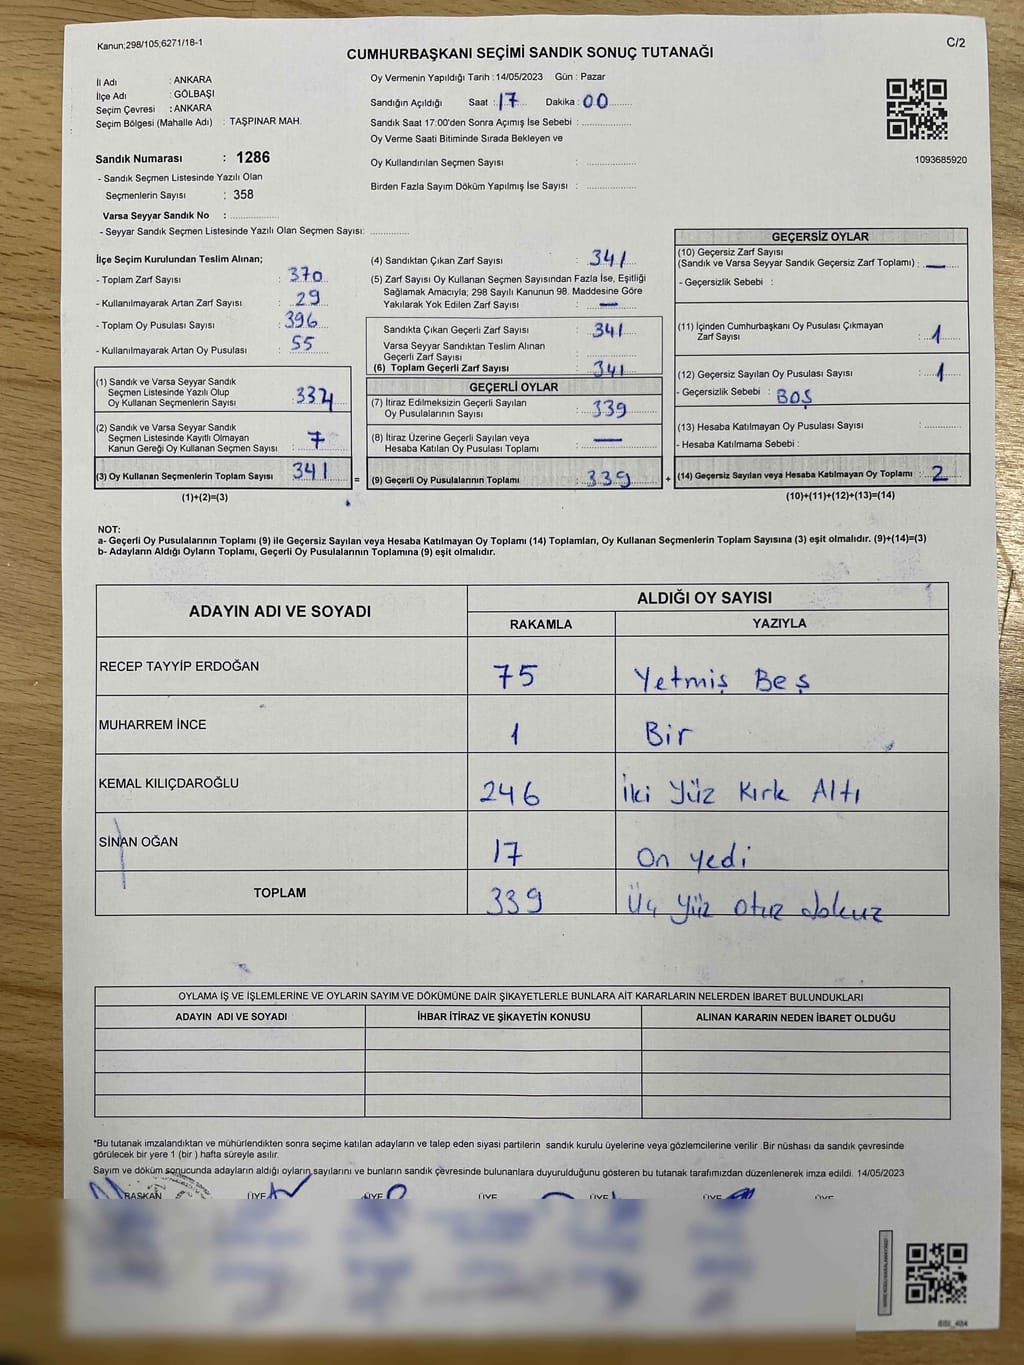 Kanun;298/105;6271/18-1
C/2
CUMHURBAŞKANI SEÇİMİ SANDIK SONUÇ TUTANAĞI
İl Adı : ANKARA
İlçe Adı : GÖLBAŞI
Seçim Çevresi : ANKARA
Seçim Bölgesi (Mahalle Adı) : TAŞPINAR MAH.
Sandık Numarası : 1286
- Sandık Seçmen Listesinde Yazılı Olan
Seçmenlerin Sayısı : 358
Varsa Seyyar Sandık No : ..............
- Seyyar Sandık Seçmen Listesinde Yazılı Olan Seçmen Sayısı: ............
Oy Vermenin Yapıldığı Tarih :14/05/2023 Gün : Pazar
Sandığın Açıldığı Saat : 17 Dakika : 00
Sandık Saat 17:00'den Sonra Açımış İse Sebebi : ..............
Oy Verme Saati Bitiminde Sırada Bekleyen ve
Oy Kullandırılan Seçmen Sayısı : ..............
Birden Fazla Sayım Döküm Yapılmış İse Sayısı : ..............
1093685920
İlçe Seçim Kurulundan Teslim Alınan;
- Toplam Zarf Sayısı : 370
- Kullanılmayarak Artan Zarf Sayısı : 29
- Toplam Oy Pusulası Sayısı : 396
- Kullanılmayarak Artan Oy Pusulası : 55
(1) Sandık ve Varsa Seyyar Sandık
Seçmen Listesinde Yazılı Olup
Oy Kullanan Seçmenlerin Sayısı : 334
(2) Sandık ve Varsa Seyyar Sandık
Seçmen Listesinde Kayıtlı Olmayan
Kanun Gereği Oy Kullanan Seçmen Sayısı : 7
(3) Oy Kullanan Seçmenlerin Toplam Sayısı : 341
(1)+(2)=(3)
(4) Sandıktan Çıkan Zarf Sayısı : 341
(5) Zarf Sayısı Oy Kullanan Seçmen Sayısından Fazla İse, Eşitliği
Sağlamak Amacıyla; 298 Sayılı Kanunun 98. Maddesine Göre
Yakılarak Yok Edilen Zarf Sayısı : —
Sandıkta Çıkan Geçerli Zarf Sayısı : 341
Varsa Seyyar Sandıktan Teslim Alınan
Geçerli Zarf Sayısı : ..............
(6) Toplam Geçerli Zarf Sayısı : 341
GEÇERLİ OYLAR
(7) İtiraz Edilmeksizin Geçerli Sayılan
Oy Pusulalarının Sayısı : 339
(8) İtiraz Üzerine Geçerli Sayılan veya
Hesaba Katılan Oy Pusulası Toplamı : —
= (9) Geçerli Oy Pusulalarının Toplamı : 339
GEÇERSİZ OYLAR
(10) Geçersiz Zarf Sayısı
(Sandık ve Varsa Seyyar Sandık Geçersiz Zarf Toplamı) : —
- Geçersizlik Sebebi :
(11) İçinden Cumhurbaşkanı Oy Pusulası Çıkmayan
Zarf Sayısı : 1
(12) Geçersiz Sayılan Oy Pusulası Sayısı : 1
- Geçersizlik Sebebi : BOŞ
(13) Hesaba Katılmayan Oy Pusulası Sayısı : ..........
- Hesaba Katılmama Sebebi :
+ (14) Geçersiz Sayılan veya Hesaba Katılmayan Oy Toplamı : 2
(10)+(11)+(12)+(13)=(14)
NOT:
a- Geçerli Oy Pusulalarının Toplamı (9) ile Geçersiz Sayılan veya Hesaba Katılmayan Oy Toplamı (14) Toplamları, Oy Kullanan Seçmenlerin Toplam Sayısına (3) eşit olmalıdır. (9)+(14)=(3)
b- Adayların Aldığı Oyların Toplamı, Geçerli Oy Pusulalarının Toplamına (9) eşit olmalıdır.
ADAYIN ADI VE SOYADI ALDIĞI OY SAYISI
RAKAMLA YAZIYLA
RECEP TAYYİP ERDOĞAN 75 Yetmiş Beş
MUHARREM İNCE 1 Bir
KEMAL KILIÇDAROĞLU 246 İki Yüz Kırk Altı
SİNAN OĞAN 17 On yedi
TOPLAM 339 Üç Yüz otuz dokuz
OYLAMA İŞ VE İŞLEMLERİNE VE OYLARIN SAYIM VE DÖKÜMÜNE DAİR ŞİKAYETLERLE BUNLARA AİT KARARLARIN NELERDEN İBARET BULUNDUKLARI
ADAYIN ADI VE SOYADI İHBAR İTİRAZ VE ŞİKAYETİN KONUSU ALINAN KARARIN NEDEN İBARET OLDUĞU
*Bu tutanak imzalandıktan ve mühürlendikten sonra seçime katılan adayların ve talep eden siyasi partilerin sandık kurulu üyelerine veya gözlemcilerine verilir .Bir nüshası da sandık çevresinde
görülecek bir yere 1 (bir ) hafta süreyle asılır.
Sayım ve döküm sonucunda adayların aldığı oyların sayılarını ve bunların sandık çevresinde bulunanlara duyurulduğunu gösteren bu tutanak tarafımızdan düzenlenerek imza edildi. 14/05/2023
BAŞKAN ÜYE ÜYE ÜYE ÜYE ÜYE ÜYE